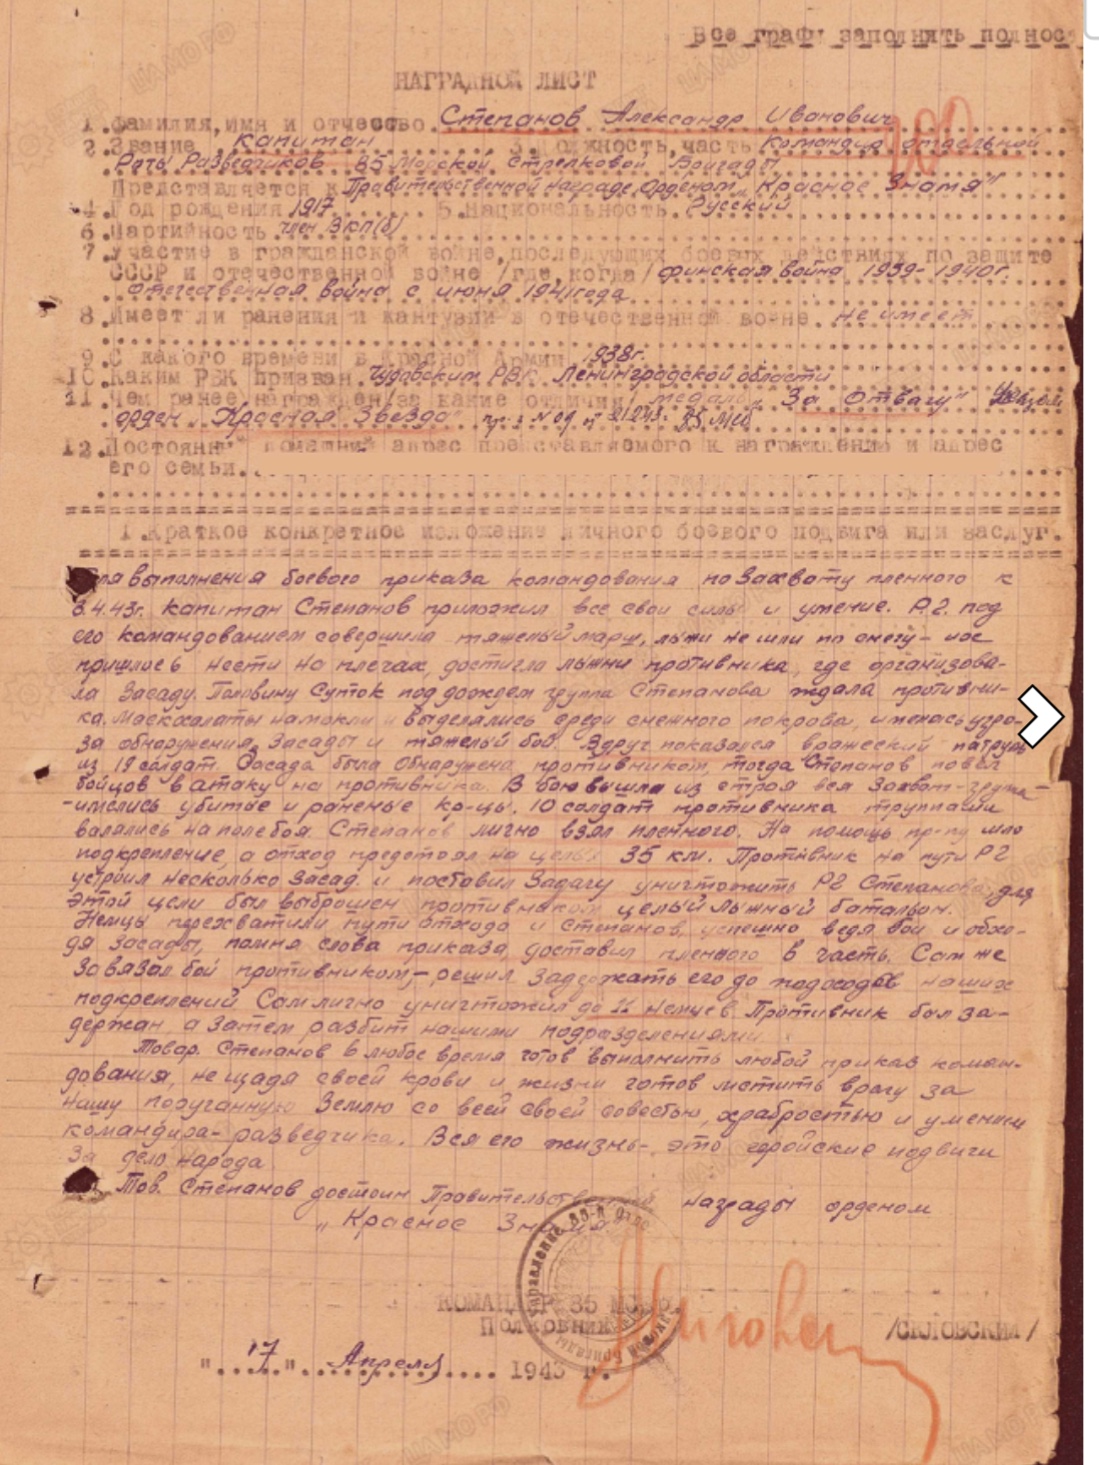 Все графы заполнять полнос
НАГРАДНОЙ ЛИСТ
1. Фамилия, имя и отчество Степанов Александр Иванович
2. Звание капитан 3. Должность, часть Командир отдельной
Роты Разведчиков 85 Морской Стрелковой Бригады
Представляется к Правительственной награде, Орденом „Красное Знамя"
4. Год рождения 1917 5. Национальность Русский
6. Партийность член ВКП(б)
7. Участие в гражданской войне, последующих боевых действиях по защите
СССР и отечественной войне /где, когда/ финская война 1939-1940г.
отечественная война с июня 1941 года
8. Имеет ли ранения и кантузии в отечественной войне. не имеет
9. С какого времени в Красной Армии 1938г.
10. Каким РВК призван. Чудовским РВК Ленинградской области
11. Чем ранее награжден /за какие отличия/ медаль „За Отвагу"
орден „Красная Звезда"
12. Постоянный домашний адрес представляемого к награждению и адрес
его семьи.
I. Краткое конкретное изложение личного боевого подвига или заслуг.
Для выполнения боевого приказа командования по захвату пленного к
8.4.43г. капитан Степанов приложил все свои силы и умение. Р.г. под
его командованием совершила тяжелый марш, лыжи не шли по снегу - их
пришлось нести на плечах, достигла лыжни противника, где организова-
ла Засаду. Половину Суток под дождем группа Степанова ждала противни-
ка. Маскхалаты намокли и выделялись среди снежного покрова, имелась угро-
за обнаружения Засады и тяжелый бой. Вдруг показался вражеский патруль
из 18 солдат. Засада была Обнаружена противником, тогда Степанов повел
бойцов в атаку на противника. В бою вышла из строя вся Захват-группа
-имелись убитые и раненые кр-цы. 10 солдат противника трупами
валялись на поле боя. Степанов лично взял пленного. На помощь пр-ку шло
подкрепление, а отход предстоял на целых 35 км. Противник на пути РГ
устроил несколько Засад и поставил Задачу уничтожить РГ Степанова, для
этой цели был выброшен противником целый Лыжный батальон.
Немцы перехватили пути отхода и Степанов, успешно ведя бои и обхо-
дя засады, помня слова приказа, доставил пленного в часть. Сам же
Завязал бой противником - решил Задержать его до подходов наших
подкреплений Сам лично уничтожил до 11 немцев. Противник был за-
держан, а Затем разбит нашими подразделениями.
Товар. Степанов в любое время готов выполнить любой приказ коман-
дования, не щадя своей крови и жизни готов мстить врагу за
нашу поруганную Землю со всей своей совестью, храбростью и умением
командира-разведчика. Вся его жизнь - это геройские подвиги
За дело народа
Тов. Степанов достоин Правительственной награды орденом
„Красное Знамя"
КОМАНДИР 85 МСБР.
Полковник /СКЛОВСКИЙ/
"17" Апреля 1943 г.